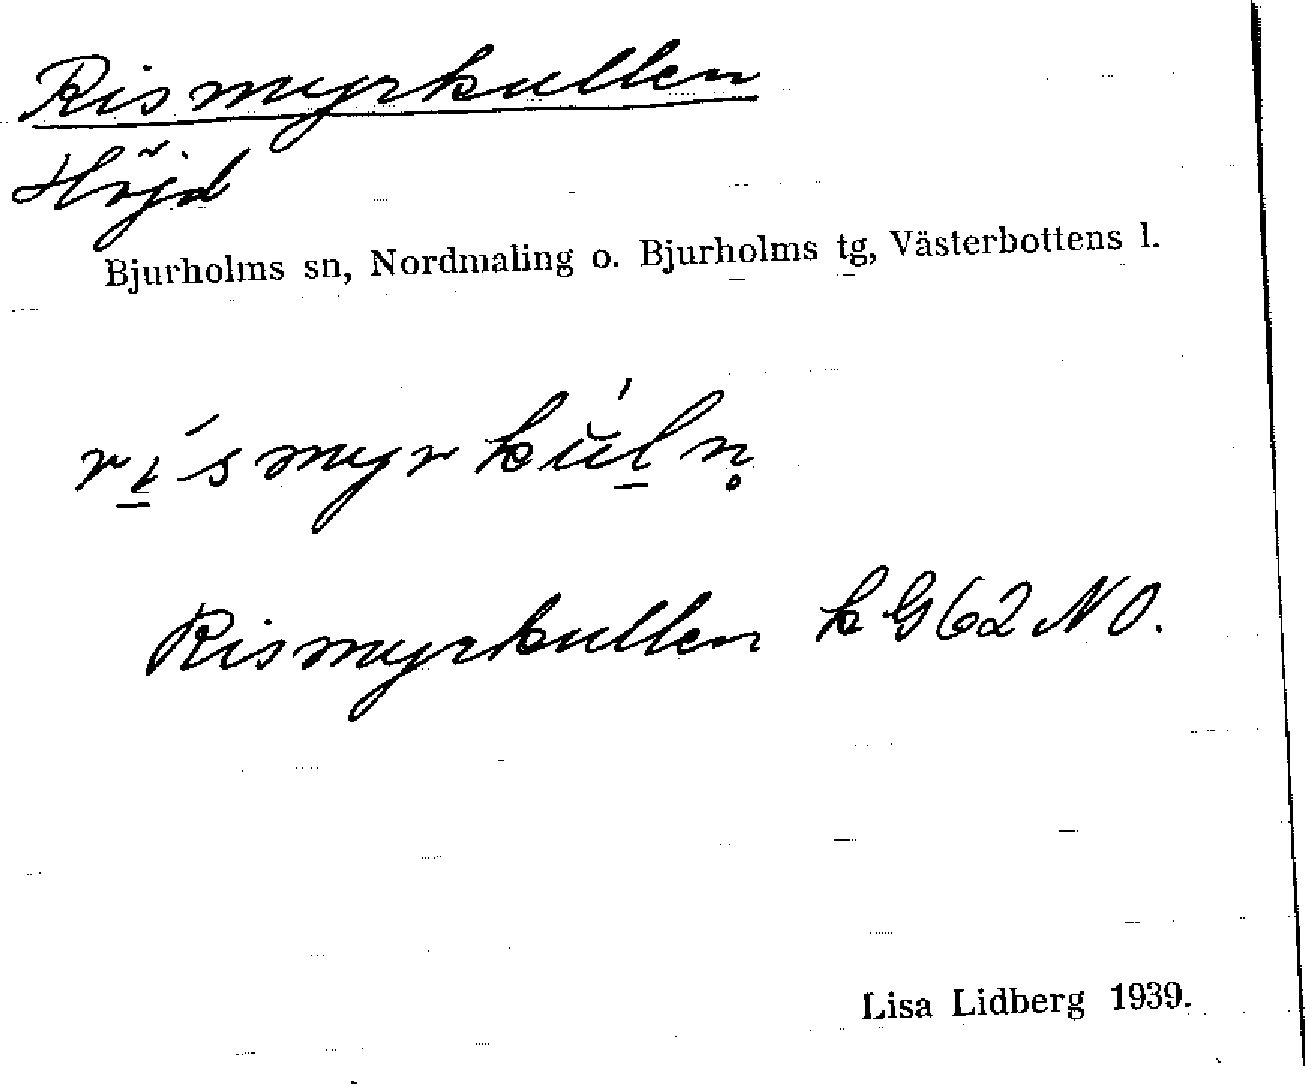 Rismyrkullen
Höjd
Bjurholms sn, Nordmaling o. Bjurholms tg, Västerbottens l.
rı̱́smyrkŭ̍ḻn̥
Rismyrkullen k G62 NO.
Lisa Lidberg 1939.